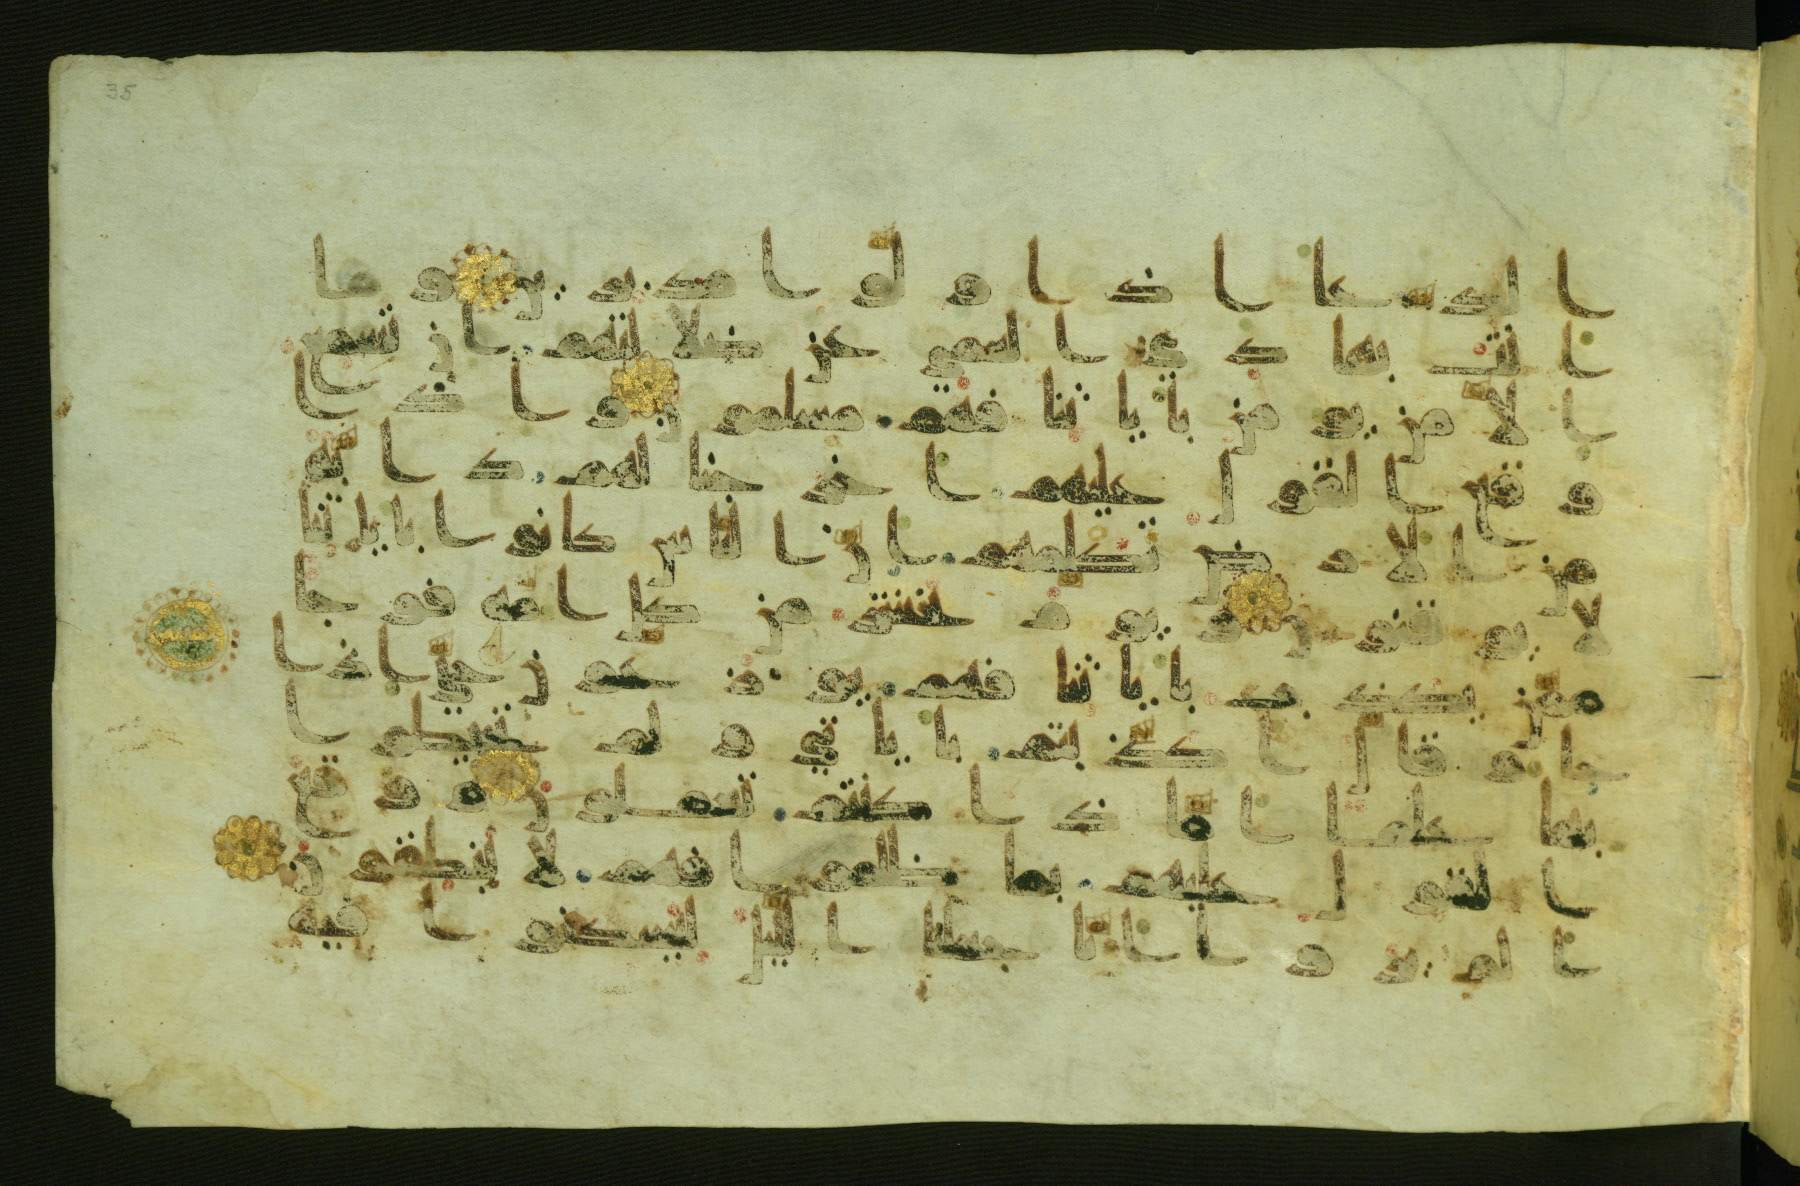 35
الدعا اذا ولوا مدبرين وما
انت بهدي العمي عن ضللتهم ان تسمع
الا من يومن باياتنا فهم مسلمون واذا
وقع القول عليهم اخرجنا لهم دابة
من الارض تكلمهم ان الناس كانوا باياتنا
لا يوقنون ويوم نحشر من كل امة فوجا
ممن يكذب باياتنا فهم يوزعون حتى اذا
جاو قال اكذبتم باياتي ولم تحيطوا
بها علما اما ذا كنتم تعملون ووقع
القول عليهم بما ظلموا فهم لا ينطقون
الم يروا انا جعلنا اليل ليسكنوا فيه